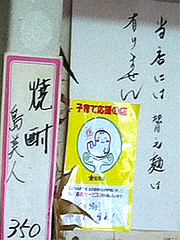 当店には
替え麺は
有りません
子育て応援の店
焼酎
島美人
350